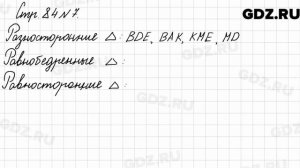 GDZ.RU
Стр. 84 N 7
Разносторонние △: BDE, BAK, KME, MD
Равнобедренные △:
Равносторонние △: